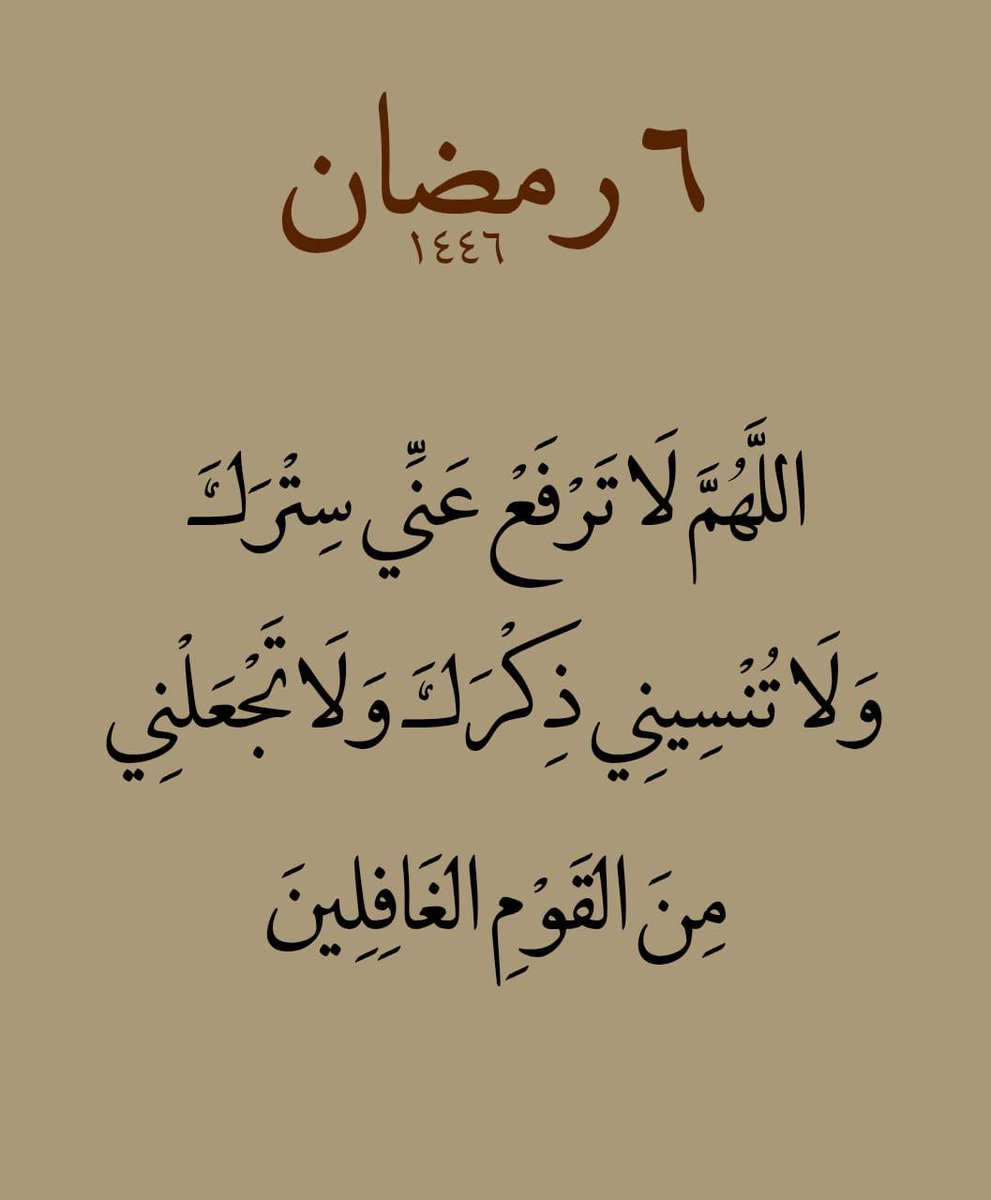 ٦ رمضان
١٤٤٦
اللَّهُمَّ لَا تَرْفَعْ عَنِّي سِتْرَكَ
وَلَا تُنْسِينِي ذِكْرَكَ وَلَا تَجْعَلْنِي
مِنَ القَوْمِ الغَافِلِينَ